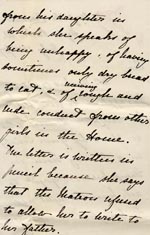 from his daughter in
which she speaks of
being unhappy, of having
sometimes only dry bread
to eat, & of receiving rough and
rude conduct from other
girls in the Home.
The letter is written in
pencil because she says
that the Matron refused
to allow her to write to
her father.